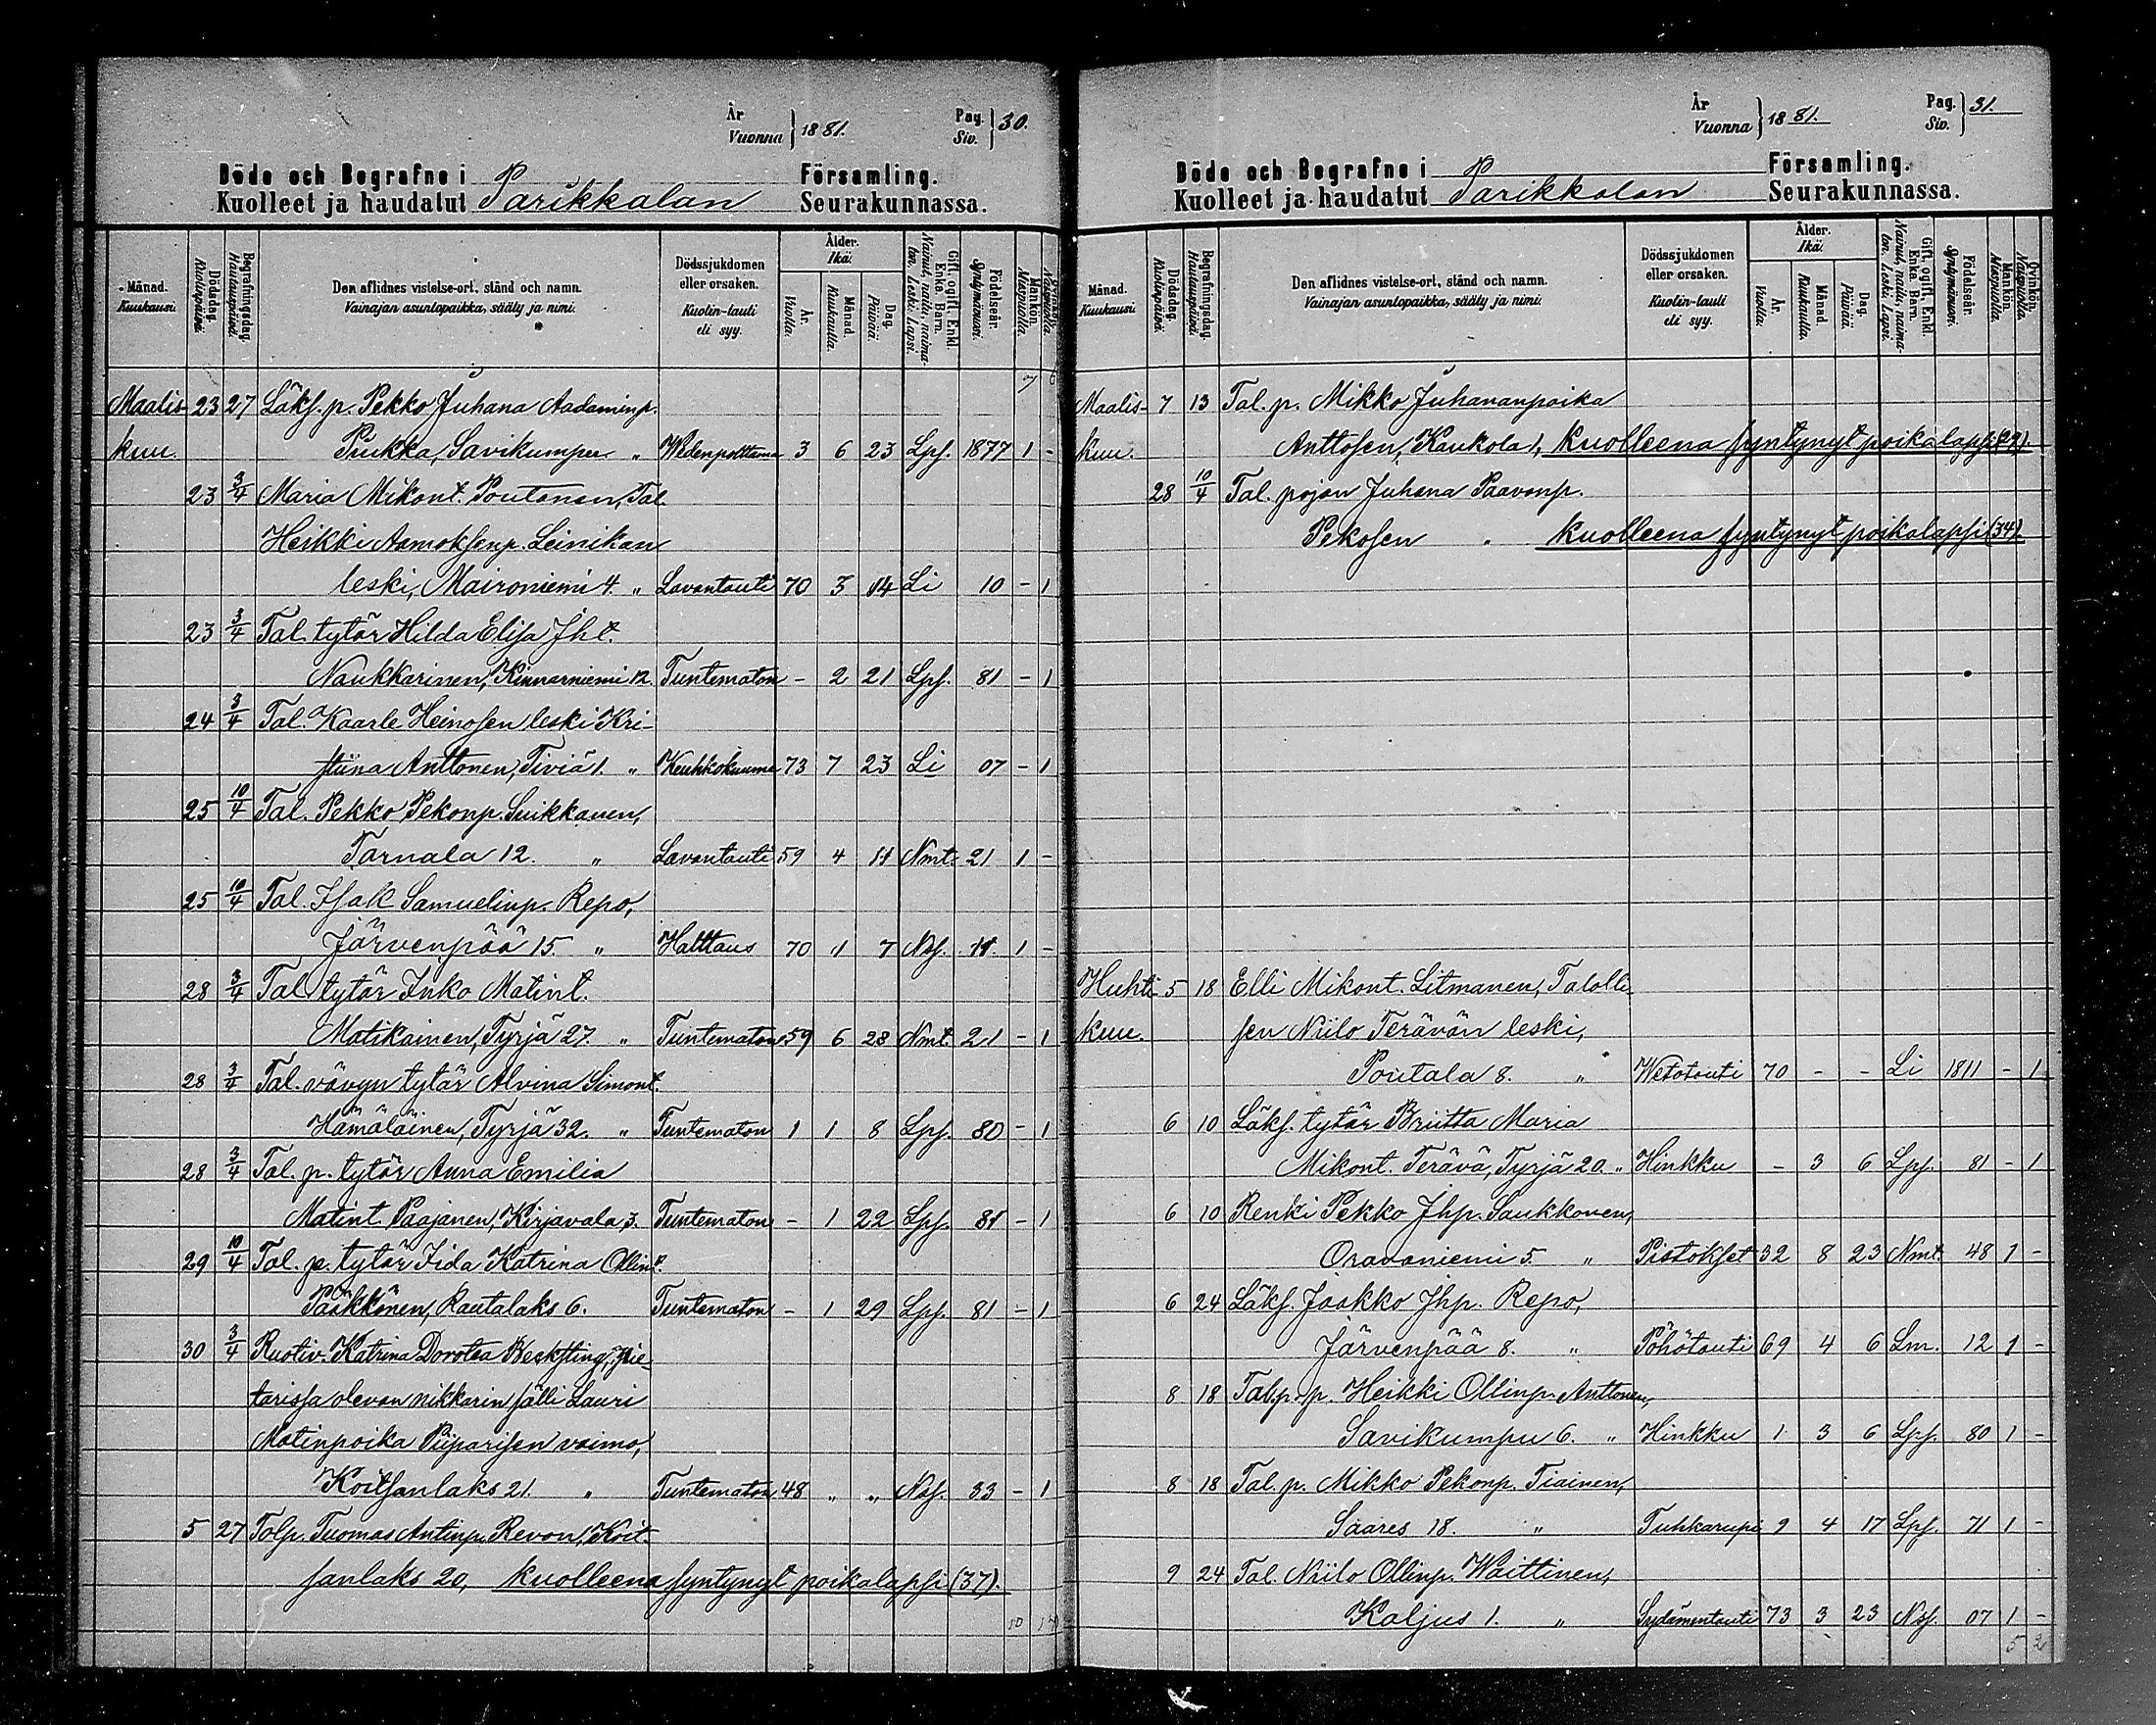 År
Vuonna } 1881.
Pag.
Siv. } 30.
Döde och Begrafne i Parikkalan Församling.
Kuolleet ja haudatut Seurakunnassa.
Månad. Kuukausi.
Dödsdag. Kuolinpäivä.
Begrafningsdag. Hautauspäivä.
Den aflidnes vistelse-ort, stånd och namn.
Vainajan asuntopaikka, sääty ja nimi.
Dödssjukdomen eller orsaken.
Kuolin-tauti eli syy.
Ålder. Ikä.
År. Vuotta.
Månad. Kuukautta.
Dag. Päivää.
Gift, ogift, Enkl. Enka Barn.
Nainut, naitu, naimaton, Leski, Lapsi.
Födelseår. Syntymävuosi.
Mankön. Miespuolia.
Qvinkön. Naispuolia.
7 6
Maalis- 23 27 Läks. p. Pekko Juhana Aadaminp.
kuu. Piukka, Savikumpu „ Wedenpolttama 3 6 23 Lps. 1877 1 -
23 3/4 Maria Mikont. Poutanen, Tal.
Heikki Aamoksenp. Leinikan
leski, Maironiemi 4. „ Lavantauti 70 3 14 Li 10 - 1
23 3/4 Tal. tytär Hilda Elisa Jht.
Naukkarinen, Kinnarniemi 12. Tuntematon - 2 21 Lps. 81 - 1
24 3/4 Tal. Kaarle Heinosen leski Kri-
stiina Anttonen, Tiviä 1. „ Keuhkokuume 73 7 23 Li 07 - 1
25 10/4 Tal. Pekko Pekonp. Suikkanen,
Tarnala 12. „ Lavantauti 59 4 11 Nmt. 21 1 -
25 10/4 Tal. Isak Samuelinp. Repo,
Järvenpää 15. „ Halttaus 70 1 7 Ns. 11 1 -
28 3/4 Tal. tytär Inko Matint.
Matikainen, Tyrjä 27. „ Tuntematon 59 6 28 Nmt. 21 - 1
28 3/4 Tal. vävyn tytär Alvina Simont.
Hämäläinen, Tyrjä 32. „ Tuntematon 1 1 8 Lps. 80 - 1
28 3/4 Tal. p. tytär Anna Emilia
Matint. Paajanen, Kirjavala 3. Tuntematon - 1 22 Lps. 81 - 1
29 10/4 Tal. p. tytär Iida Katrina Ollint.
Pääkkönen, Rautalaks 6. Tuntematon - 1 29 Lps. 81 - 1
30 3/4 Ruotiv. Katrina Dorotea, Pie-
tarissa olevan nikkarin sälli Lauri
Matinpoika Piiparisen vaimo,
Koitsanlaks 21. „ Tuntematon 48 „ „ Ns. 33 - 1
5 27 Talp. Tuomas Antinp. Revon, Koit-
sanlaks 20, kuolleena syntynyt poikalapsi (37).
År
Vuonna } 1881.
Pag.
Siv. } 31.
Döde och Begrafne i Parikkalan Församling.
Kuolleet ja haudatut Seurakunnassa.
Månad. Kuukausi.
Dödsdag. Kuolinpäivä.
Begrafningsdag. Hautauspäivä.
Den aflidnes vistelse-ort, stånd och namn.
Vainajan asuntopaikka, sääty ja nimi.
Dödssjukdomen eller orsaken.
Kuolin-tauti eli syy.
Ålder. Ikä.
År. Vuotta.
Månad. Kuukautta.
Dag. Päivää.
Gift, ogift, Enkl. Enka Barn.
Nainut, naitu, naimaton, Leski, Lapsi.
Födelseår. Syntymävuosi.
Mankön. Miespuolia.
Qvinkön. Naispuolia.
Maalis- 7 13 Tal. p. Mikko Juhananpoika
kuu. Anttosen, Kaukola 1, kuolleena syntynyt poikalapsi (29).
28 10/4 Tal. pojan Juhana Paavonp.
Pekosen „ kuolleena syntynyt poikalapsi (34).
Huhti- 5 18 Elli Mikont. Litmanen, Talolli-
kuu. sen Niilo Terävän leski,
Poutala 8. „ Wetotauti 70 - - Li 1811 - 1
6 10 Läks. tytär Briitta Maria
Mikont. Terävä, Tyrjä 20. „ Hinkku - 3 6 Lps. 81 - 1
6 10 Renki Pekko Jhp. Saukkonen,
Oravaniemi 5. „ Pistokset 32 8 23 Nmt. 48 1 -
6 24 Läks. Jaakko Jhp. Repo,
Järvenpää 8. „ Pöhötauti 69 4 6 Lm. 12 1 -
8 18 Talp. p. Heikki Ollinp. Anttonen,
Savikumpu 6. „ Hinkku 1 3 6 Lps. 80 1 -
8 18 Tal. p. Mikko Pekonp. Tiainen,
Saares 18. „ Tuhkarupi 9 4 17 Lps. 71 1 -
9 24 Tal. Niilo Ollinp. Waittinen,
Kaljus 1. „ Sydämentauti 73 3 23 Ns. 07 1 -
5 2